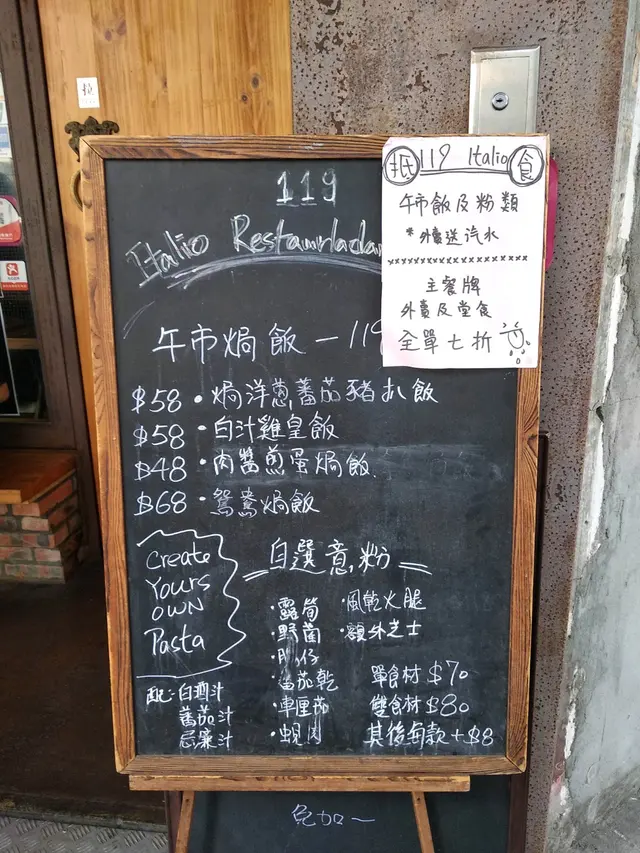 拉
抵 119 Italio 食
午市飯及粉類
*外賣送汽水
主餐牌
外賣及堂食
全單七折
119
Italio
午市焗飯 - 119
$58 · 焗洋蔥蕃茄豬扒飯
$58 · 白汁雞皇飯
$48 · 肉醬煎蛋焗飯
$68 · 鴛鴦焗飯
Create
Yours
OWN
Pasta
自選意粉
· 露筍
· 野菌
· 腸仔
· 蕃茄乾
· 車厘茄
· 蜆肉
· 風乾火腿
· 額外芝士
單食材 $70
雙食材 $80
其後每款 + $8
配: 白酒汁
蕃茄汁
忌廉汁
免加一